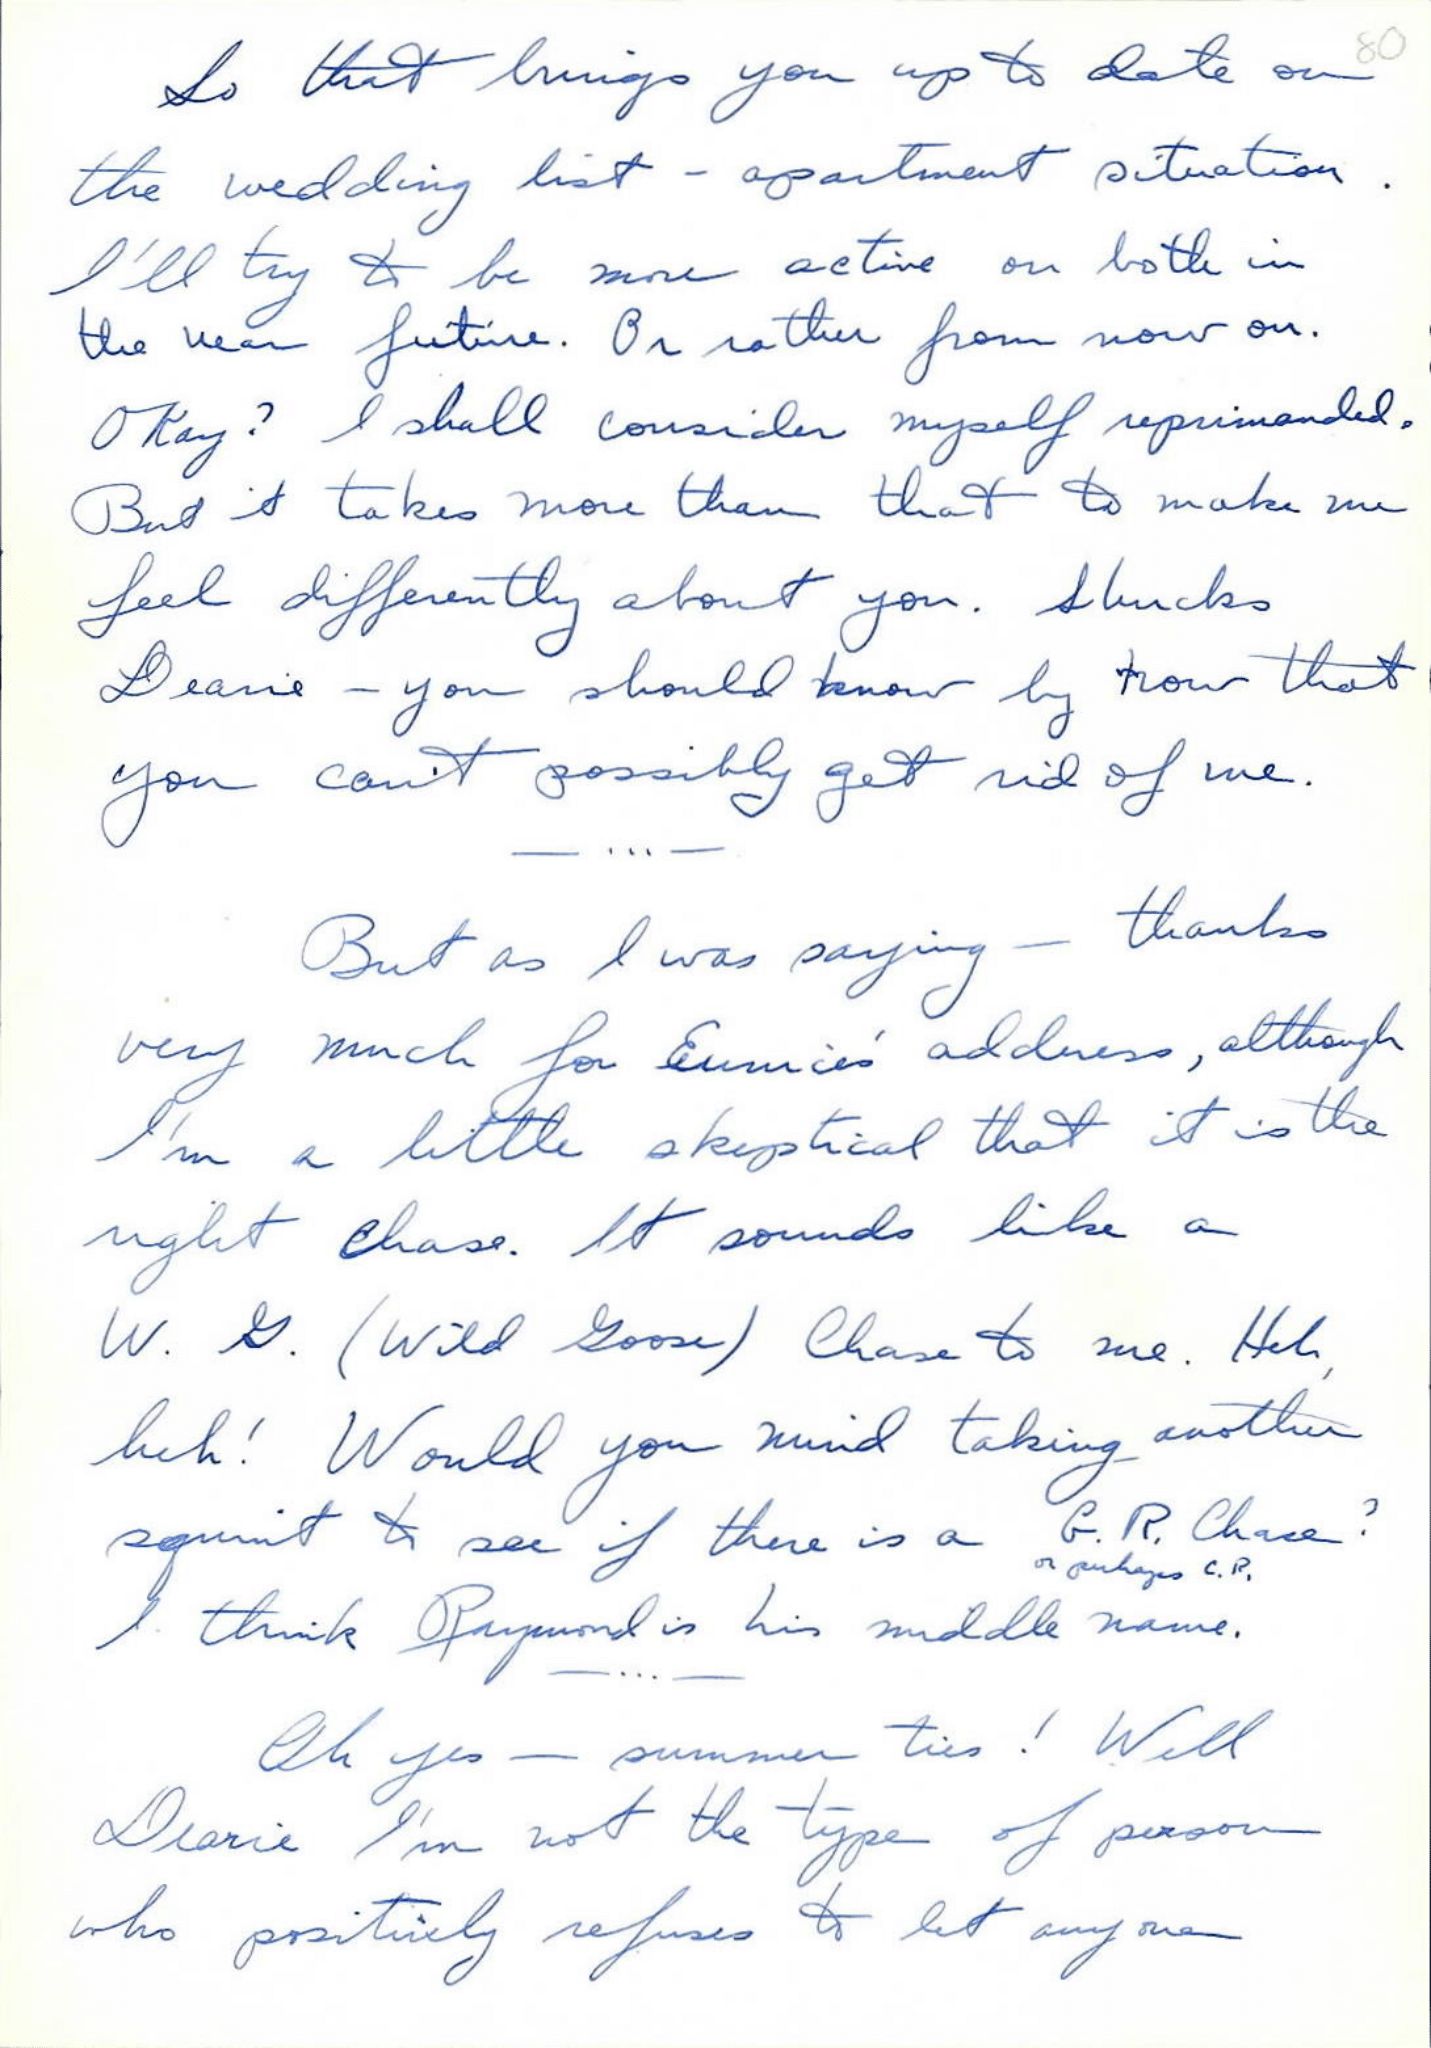 80
So that brings you up to date on
the wedding list - apartment situation.
I'll try to be more active on both in
the near future. Or rather from now on.
OKay? I shall consider myself reprimanded.
But it takes more than that to make me
feel differently about you. Shucks
Dearie - you should know by now that
you can't possibly get rid of me.
— ... —
But as I was saying — thanks
very much for Eunice's address, although
I'm a little skeptical that it is the
right Chase. It sounds like a
W. G. (Wild Goose) Chase to me. Heh,
heh! Would you mind taking another
squint to see if there is a G. R. Chase?
or perhaps C. R.
I think Raymond is his middle name.
— ... —
Oh yes — summer ties! Well
Dearie I'm not the type of person
who positively refuses to let anyone